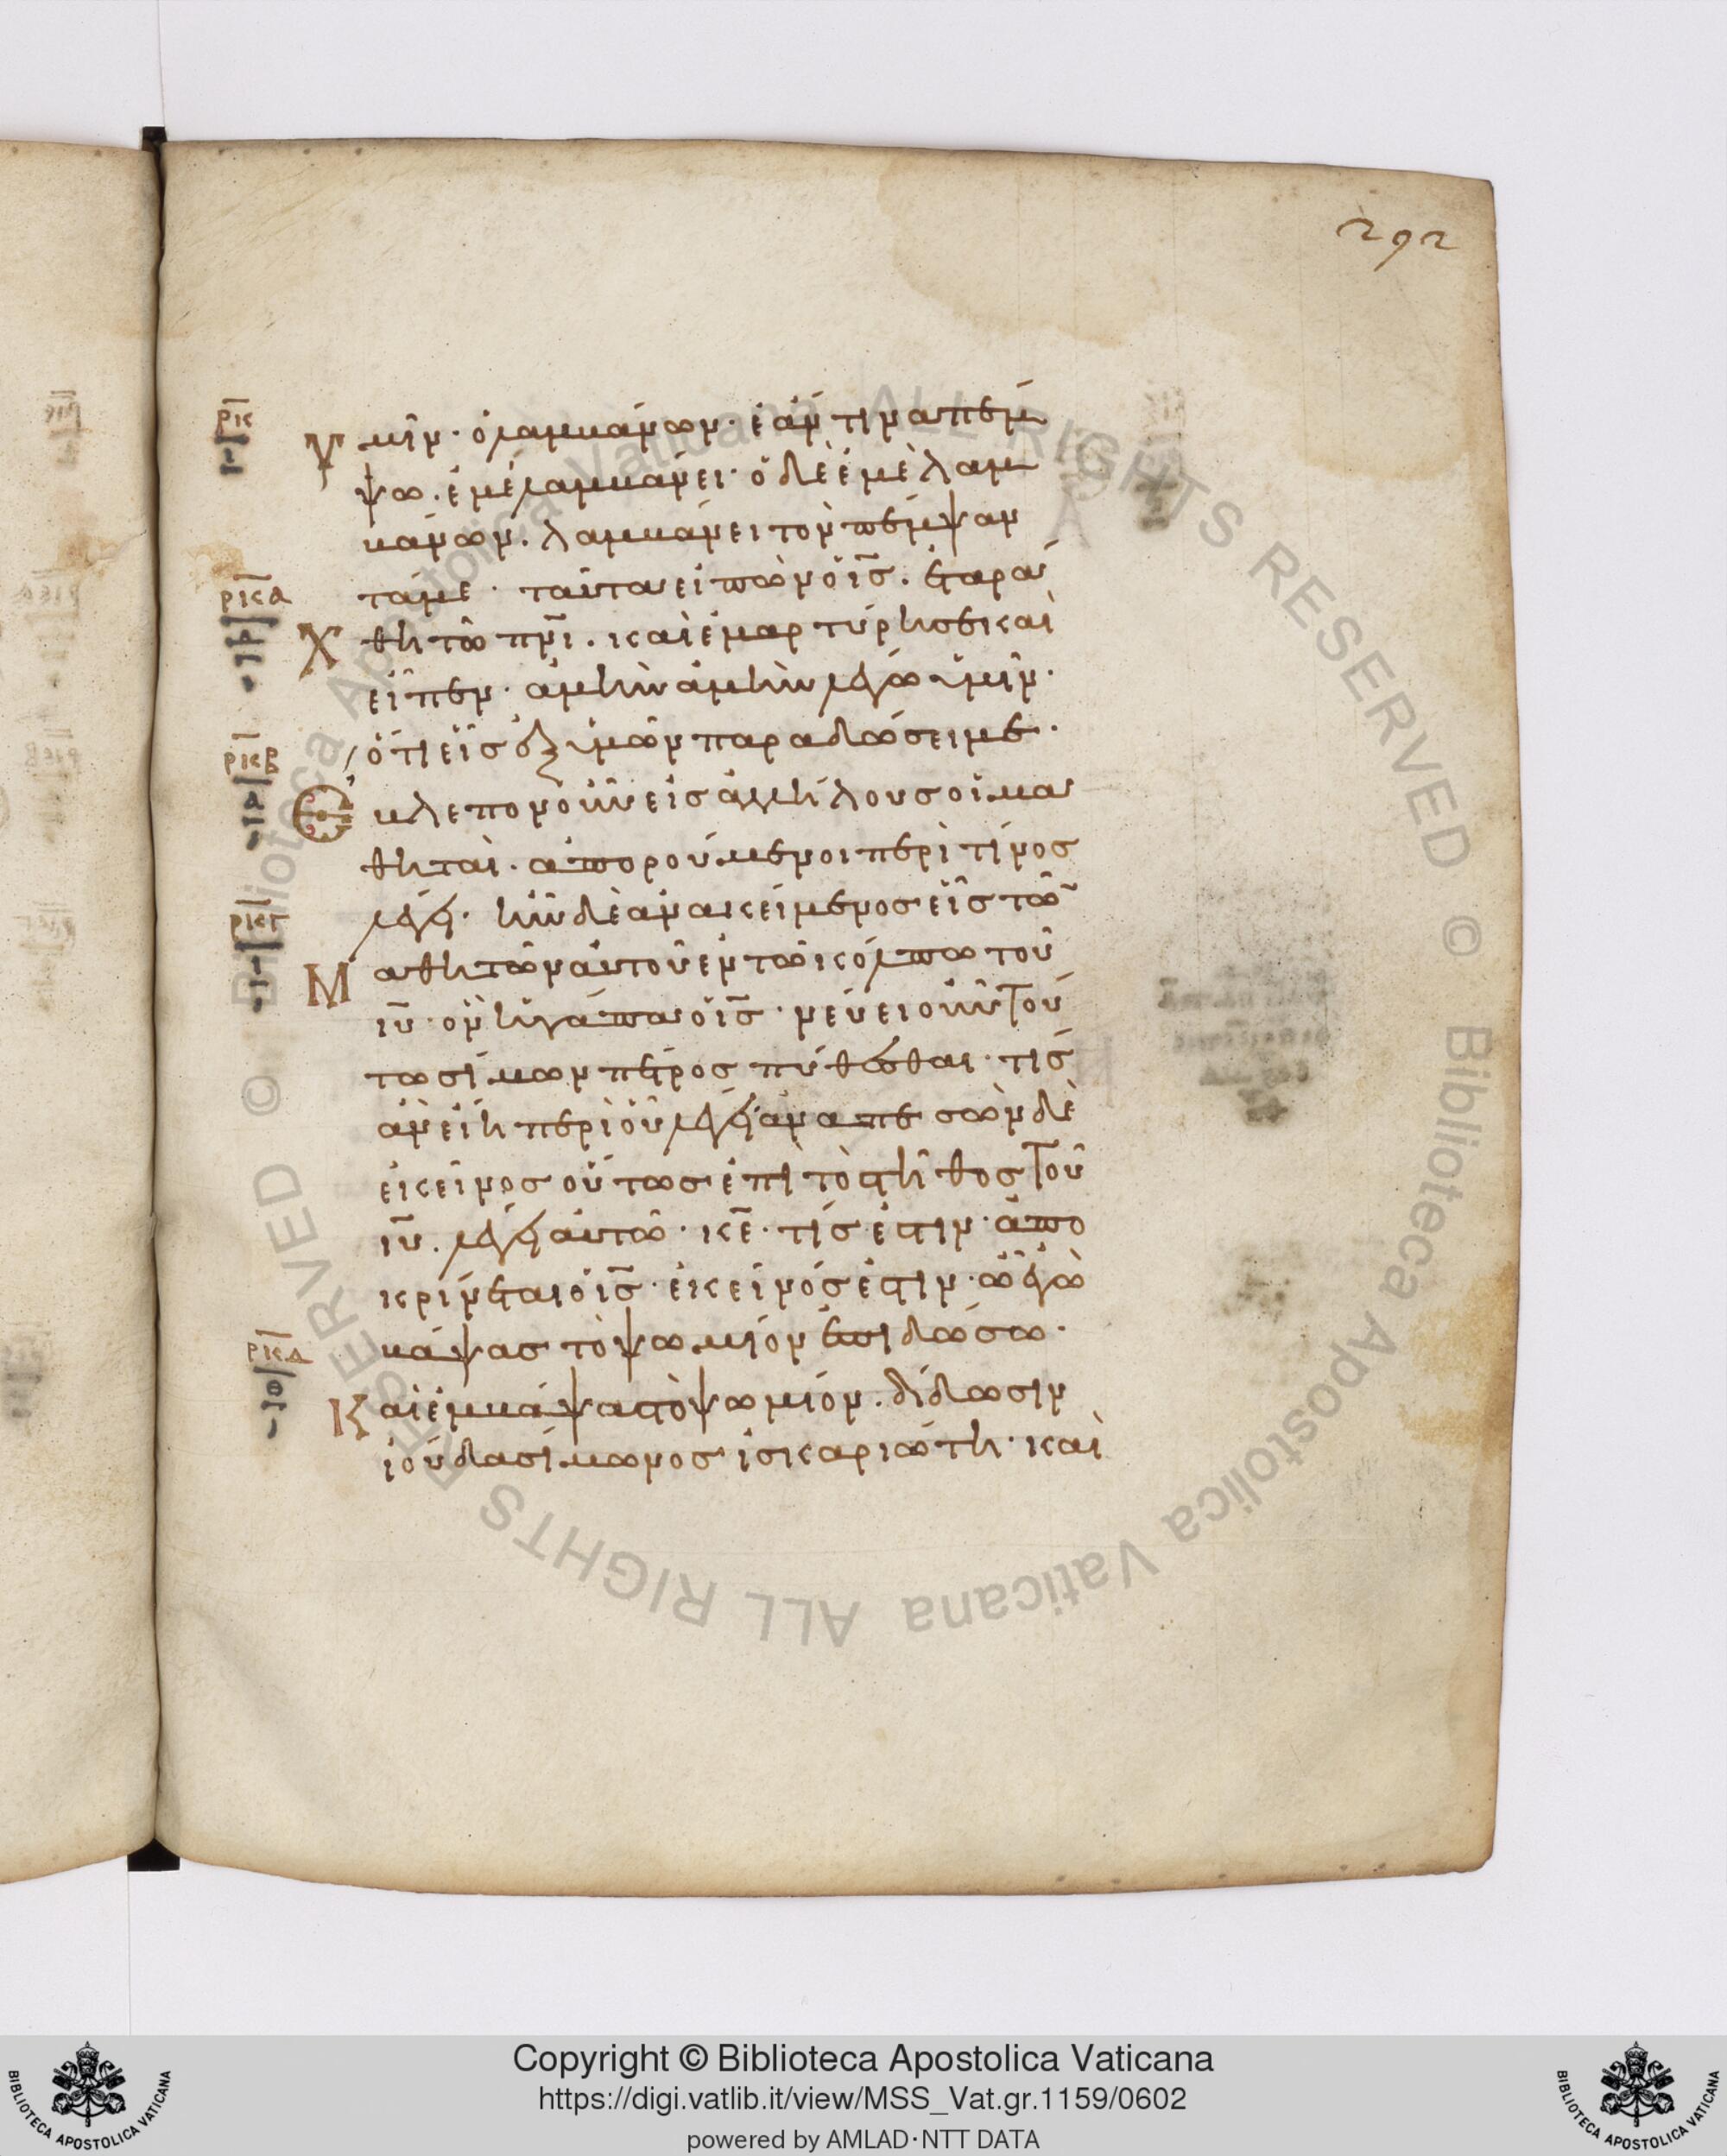 292
ρκ
ι
Υμῖν· ὁ λαμβάνων· ἐάν τινα πέμ
ψω. ἐμὲ λαμβάνει· ὁ δὲ ἐμὲ λαμ
βάνων. λαμβάνει τὸν πέμψαν
τάμε· ταῦτα εἰπὼν ὁ ις. ἐταρά
ρκα
χθη τῶ πνι. καὶ ἐμαρτύρησε καὶ
εἶπεν· ἀμὴν ἀμὴν λέγω ὑμῖν·
ὅτι εἷς ἐξ ὑμῶν παραδώσει με·
ρκβ
Εβλεπον οὖν εἰς ἀλλήλους οἱ μα
θηταὶ. ἀπορούμενοι περὶ τίνος
λέγει· ἦν δὲ ἀνακείμενος εἷς τῶ
ρκγ
Μαθητῶν αὐτοῦ ἐν τῶ κόλπω τοῦ
ιυ· ὃν ἠγάπα ὁ ις· νεύει οὖν τού
τω σίμων πέτρος πυθέσθαι· τίς
ἂν εἴη περὶ οὗ λέγει· ἀναπεσὼν δὲ
ἐκεῖνος οὕτως ἐπὶ τὸ στῆθος τοῦ
ιυ. λέγει αὐτῶ· κε· τίς ἐστιν· ἀπο
κρίνεται ὁ ις· ἐκεῖνός ἐστιν· ὧ ἐγὼ
βάψας τὸ ψωμίον ἐπιδώσω·
ρκδ
Καὶ ἐμβάψας τὸ ψωμίον. δίδωσιν
ἰούδα σίμωνος ἰσκαριώτη· καὶ
Copyright © Biblioteca Apostolica Vaticana
https://digi.vatlib.it/view/MSS_Vat.gr.1159/0602
powered by AMLAD·NTT DATA
BIBLIOTECA APOSTOLICA VATICANA
BIBLIOTECA APOSTOLICA VATICANA
© Biblioteca Apostolica Vaticana ALL RIGHTS RESERVED
© Biblioteca Apostolica Vaticana ALL RIGHTS RESERVED